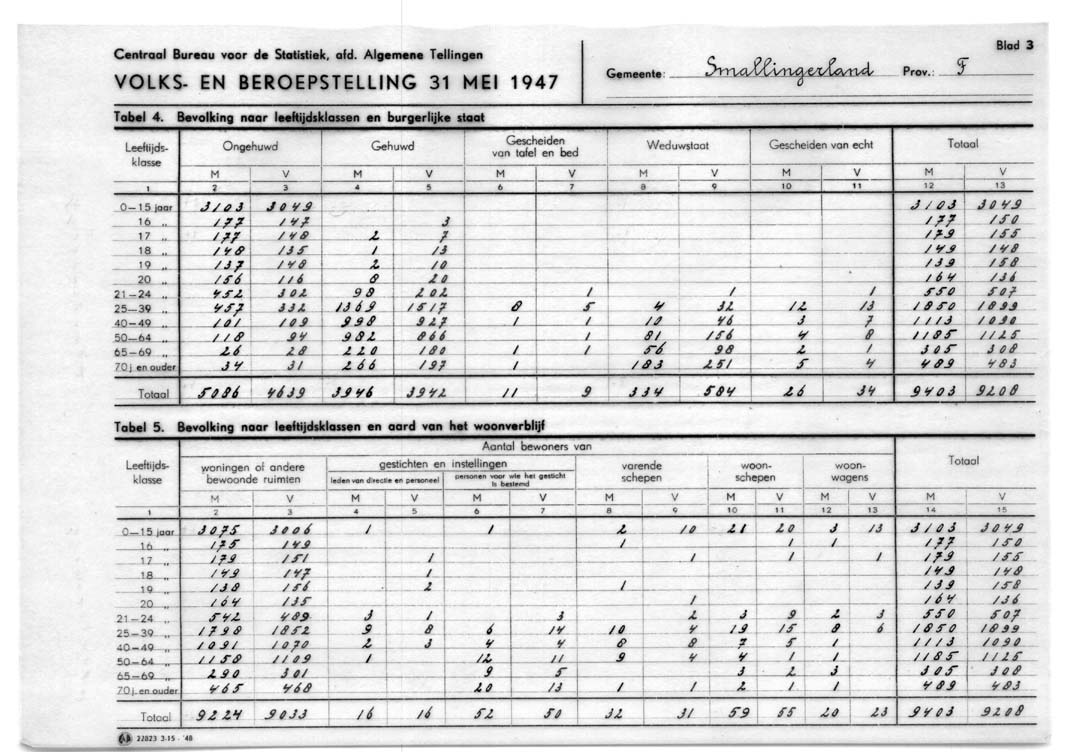 Centraal Bureau voor de Statistiek, afd. Algemene Tellingen
VOLKS- EN BEROEPSTELLING 31 MEI 1947
Gemeente: Smallingerland Prov.: F
Blad 3
Tabel 4. Bevolking naar leeftijdsklassen en burgerlijke staat
Leeftijds-klasse Ongehuwd Gehuwd Gescheiden van tafel en bed Weduwstaat Gescheiden van echt Totaal
M V M V M V M V M V M V
1 2 3 4 5 6 7 8 9 10 11 12 13
0—15 jaar 3103 3049 3103 3049
16 „ 177 147 3 177 150
17 „ 177 148 2 7 179 155
18 „ 148 135 1 13 149 148
19 „ 137 148 2 10 139 158
20 „ 156 116 8 20 164 136
21—24 „ 452 302 98 202 1 1 1 550 507
25—39 „ 457 332 1369 1517 8 5 4 32 12 13 1850 1899
40—49 „ 101 109 998 927 1 1 10 46 3 7 1113 1090
50—64 „ 118 94 982 866 1 81 156 4 8 1185 1125
65—69 „ 26 28 220 180 1 1 56 98 2 1 305 308
70 j. en ouder 34 31 266 197 1 183 251 5 4 489 483
Totaal 5086 4639 3946 3942 11 9 334 584 26 34 9403 9208
Tabel 5. Bevolking naar leeftijdsklassen en aard van het woonverblijf
Leeftijds-klasse Aantal bewoners van Totaal
woningen of andere bewoonde ruimten gestichten en instellingen varende schepen woon-schepen woon-wagens
leden van directie en personeel personen voor wie het gesticht is bestemd
M V M V M V M V M V M V M V
1 2 3 4 5 6 7 8 9 10 11 12 13 14 15
0—15 jaar 3075 3006 1 1 2 10 21 20 3 13 3103 3049
16 „ 175 149 1 1 1 177 150
17 „ 179 151 1 1 1 1 179 155
18 „ 149 147 1 149 148
19 „ 138 156 2 1 139 158
20 „ 164 135 1 164 136
21—24 „ 542 489 3 1 3 2 3 9 2 3 550 507
25—39 „ 1798 1852 9 8 6 14 10 4 19 15 8 6 1850 1899
40—49 „ 1091 1070 2 3 4 4 8 8 7 5 1 1113 1090
50—64 „ 1158 1109 1 12 11 9 4 4 1 1 1185 1125
65—69 „ 290 301 9 5 3 2 3 305 308
70 j. en ouder 465 468 20 13 1 1 2 1 1 489 483
Totaal 9224 9033 16 16 52 50 32 31 59 55 20 23 9403 9208
22823 3-15 - '48